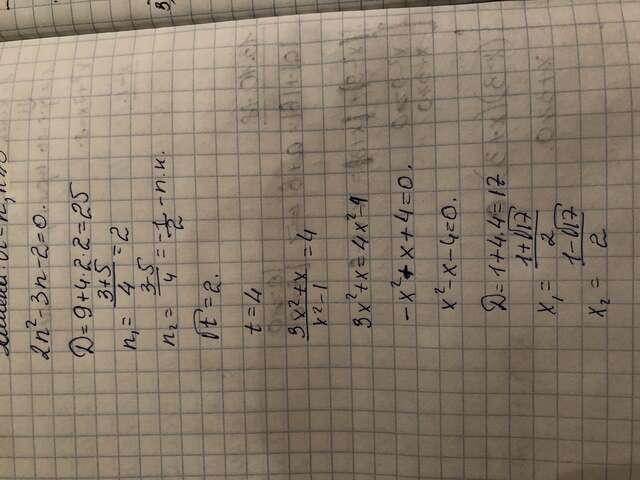 Замена: √t = n, n≥0
2n²-3n-2=0.
D=9+4·2·2=25
n₁ = (3+5)/4 = 2
n₂ = (3-5)/4 = -1/2 - п.к.
√t = 2.
t = 4
(3x²+x)/(x²-1) = 4
3x²+x=4x²-4
-x²+x+4=0.
x²-x-4=0.
D=1+4·4=17
x₁ = (1+√17)/2
x₂ = (1-√17)/2